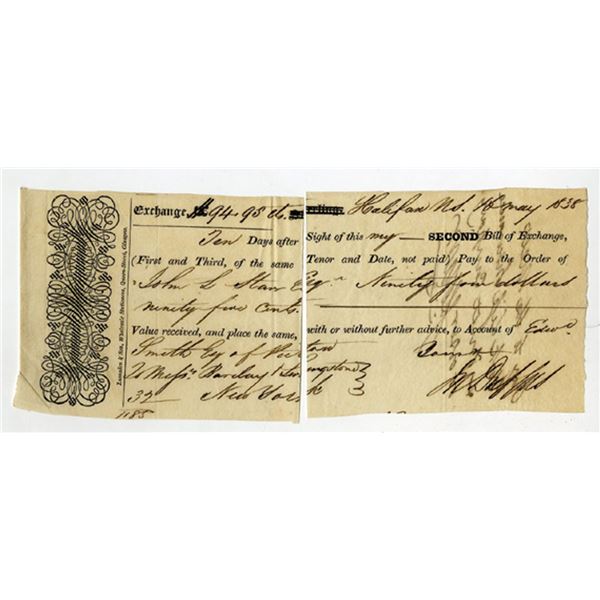 Exchange $94.95 cts. Sterling, Halifax N.S. May 1838
Ten Days after Sight of this my SECOND Bill of Exchange,
(First and Third, of the same Tenor and Date, not paid) Pay to the Order of
John L Starr Esqr Ninety four dollars
ninety five cents.
Value received, and place the same, with or without further advice, to Account of Edwd
Smith Esq of
To Messrs Barclay & Livingston
New York
Lumsden & Son, Wholesale Stationers, Queen-Street, Glasgow.